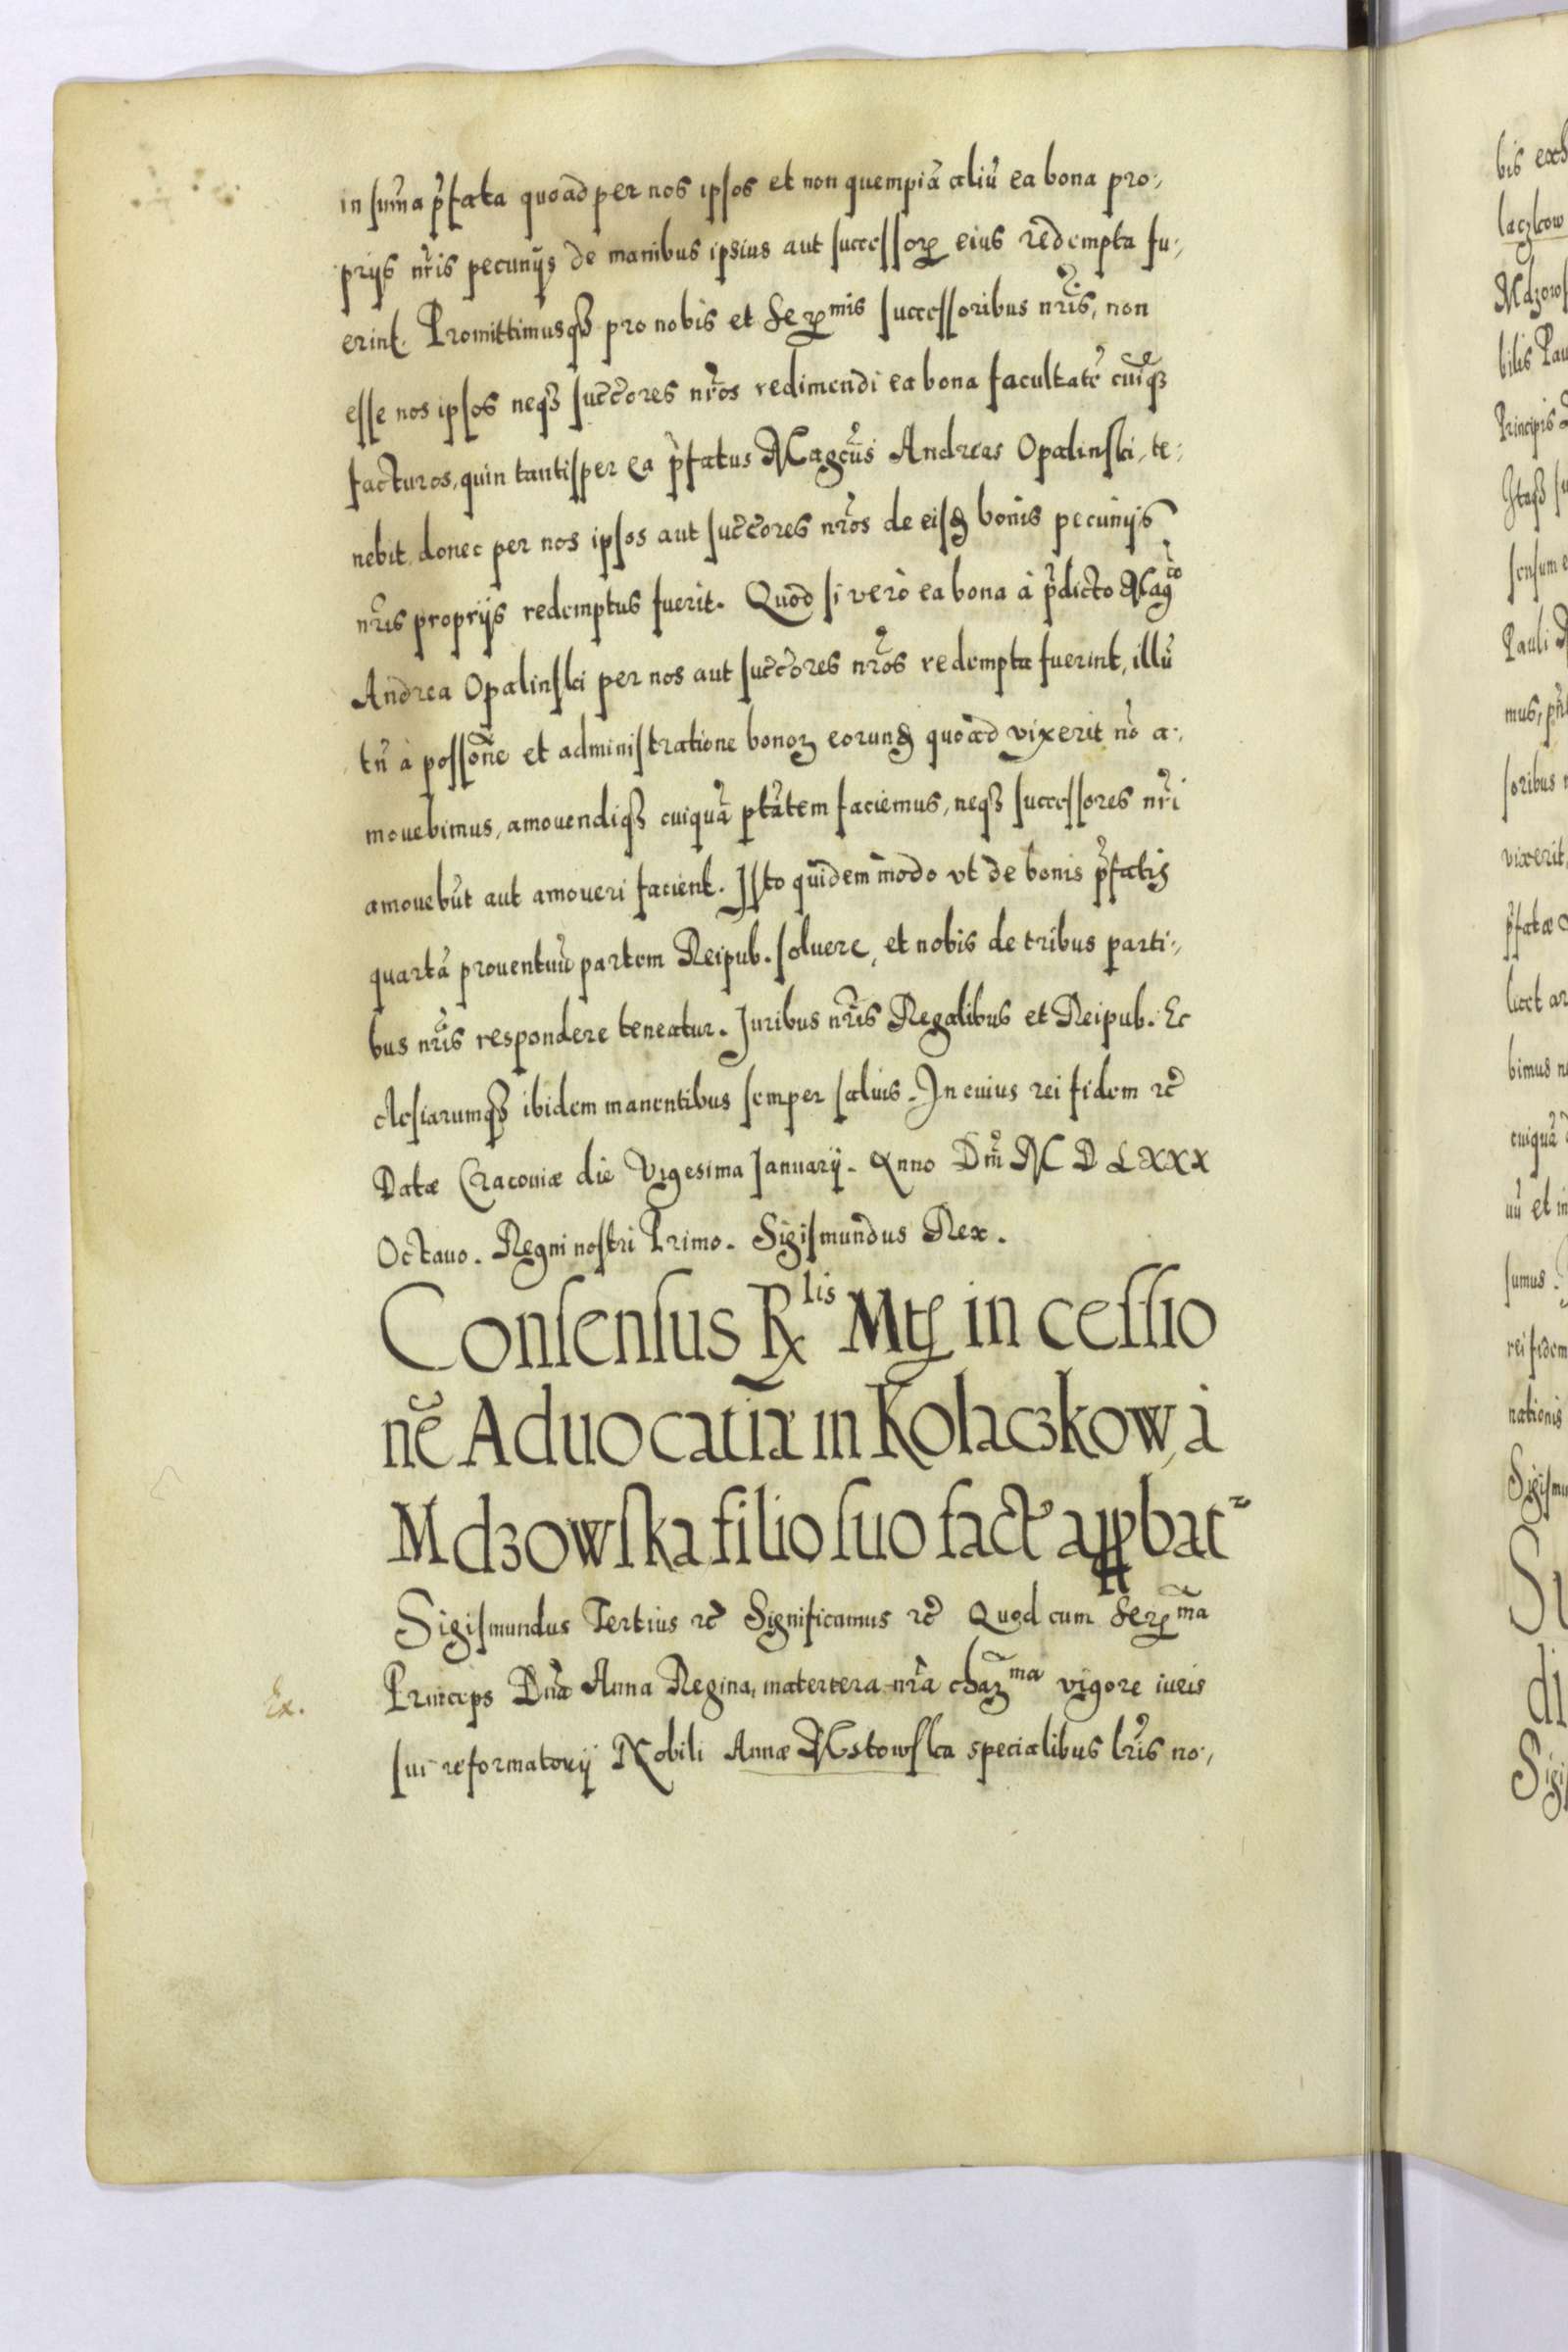 in sum̃a p̃fata quoad per nos ipsos et non quempiã aliũ ea bona pro-,
prijs nr̃is pecunijs de manibus ipsius aut successorꝝ eius redempta fu-,
erint. Promittimusqꝫ pro nobis et Serꝫmis successoribus nr̃is, non
esse nos ipsos neqꝫ succ̃ores nr̃os redimendi ea bona facultatẽ cuiqꝫ
facturos, quin tantisper ea p̃fatus Magcũs Andreas Opalinski, te-,
nebit, donec per nos ipsos aut succ̃ores nr̃os de eisdẽ bonis pecunijs
nr̃is proprijs redemptus fuerit. Quod si verò ea bona à p̃dicto Magco
Andrea Opalinski per nos aut succ̃ores nr̃os redempta fuerint, illũ
tñ à possoñe et administratione bonoꝝ eorundẽ quoad vixerit nõ a-,
mouebimus, amouendiqꝫ cuiquã ptãtem faciemus, neqꝫ successores nr̃i
amouebũt aut amoueri facient. Isto quidem modo vt de bonis p̃fatis
quartã prouentuũ partem Reipub. soluere, et nobis de tribus parti-,
bus nr̃is respondere teneatur. Juribus nr̃is Regalibus et Reipub. Ec
clesiarumqꝫ ibidem manentibus semper saluis. In cuius rei fidem etc̃
Datæ Cracouiæ die Vigesima Januarij. Anno Dm̃ M D LXXX
Octauo. Regni nostri Primo. Sigismundus Rex.
Consensus Rlis Mtꝭ in cessio
nẽ Aduocatiæ in Kolaczkow, à
Mdzowska filio suo factẽ apꝓbatr
Sigismundus Tertius etc̃ Significamus etc̃ Quod cum Serꝫma
Ex. Princeps Dña Anna Regina, matertera nr̃a chaꝝma vigore iuris
sui reformatorij Nobili Annæ Mstowska specialibus lr̃is no-,
bis
laczkow
Mdzows
bilis Pau
Principis
Itaqꝫ
sensum
Pauli
mus,
soribus
vixerit,
p̃fatæ
licet
bimus
cuiquã
uũ et in
sumus.
rei fidem
nationis
Sigismu
Su
di
Sigi